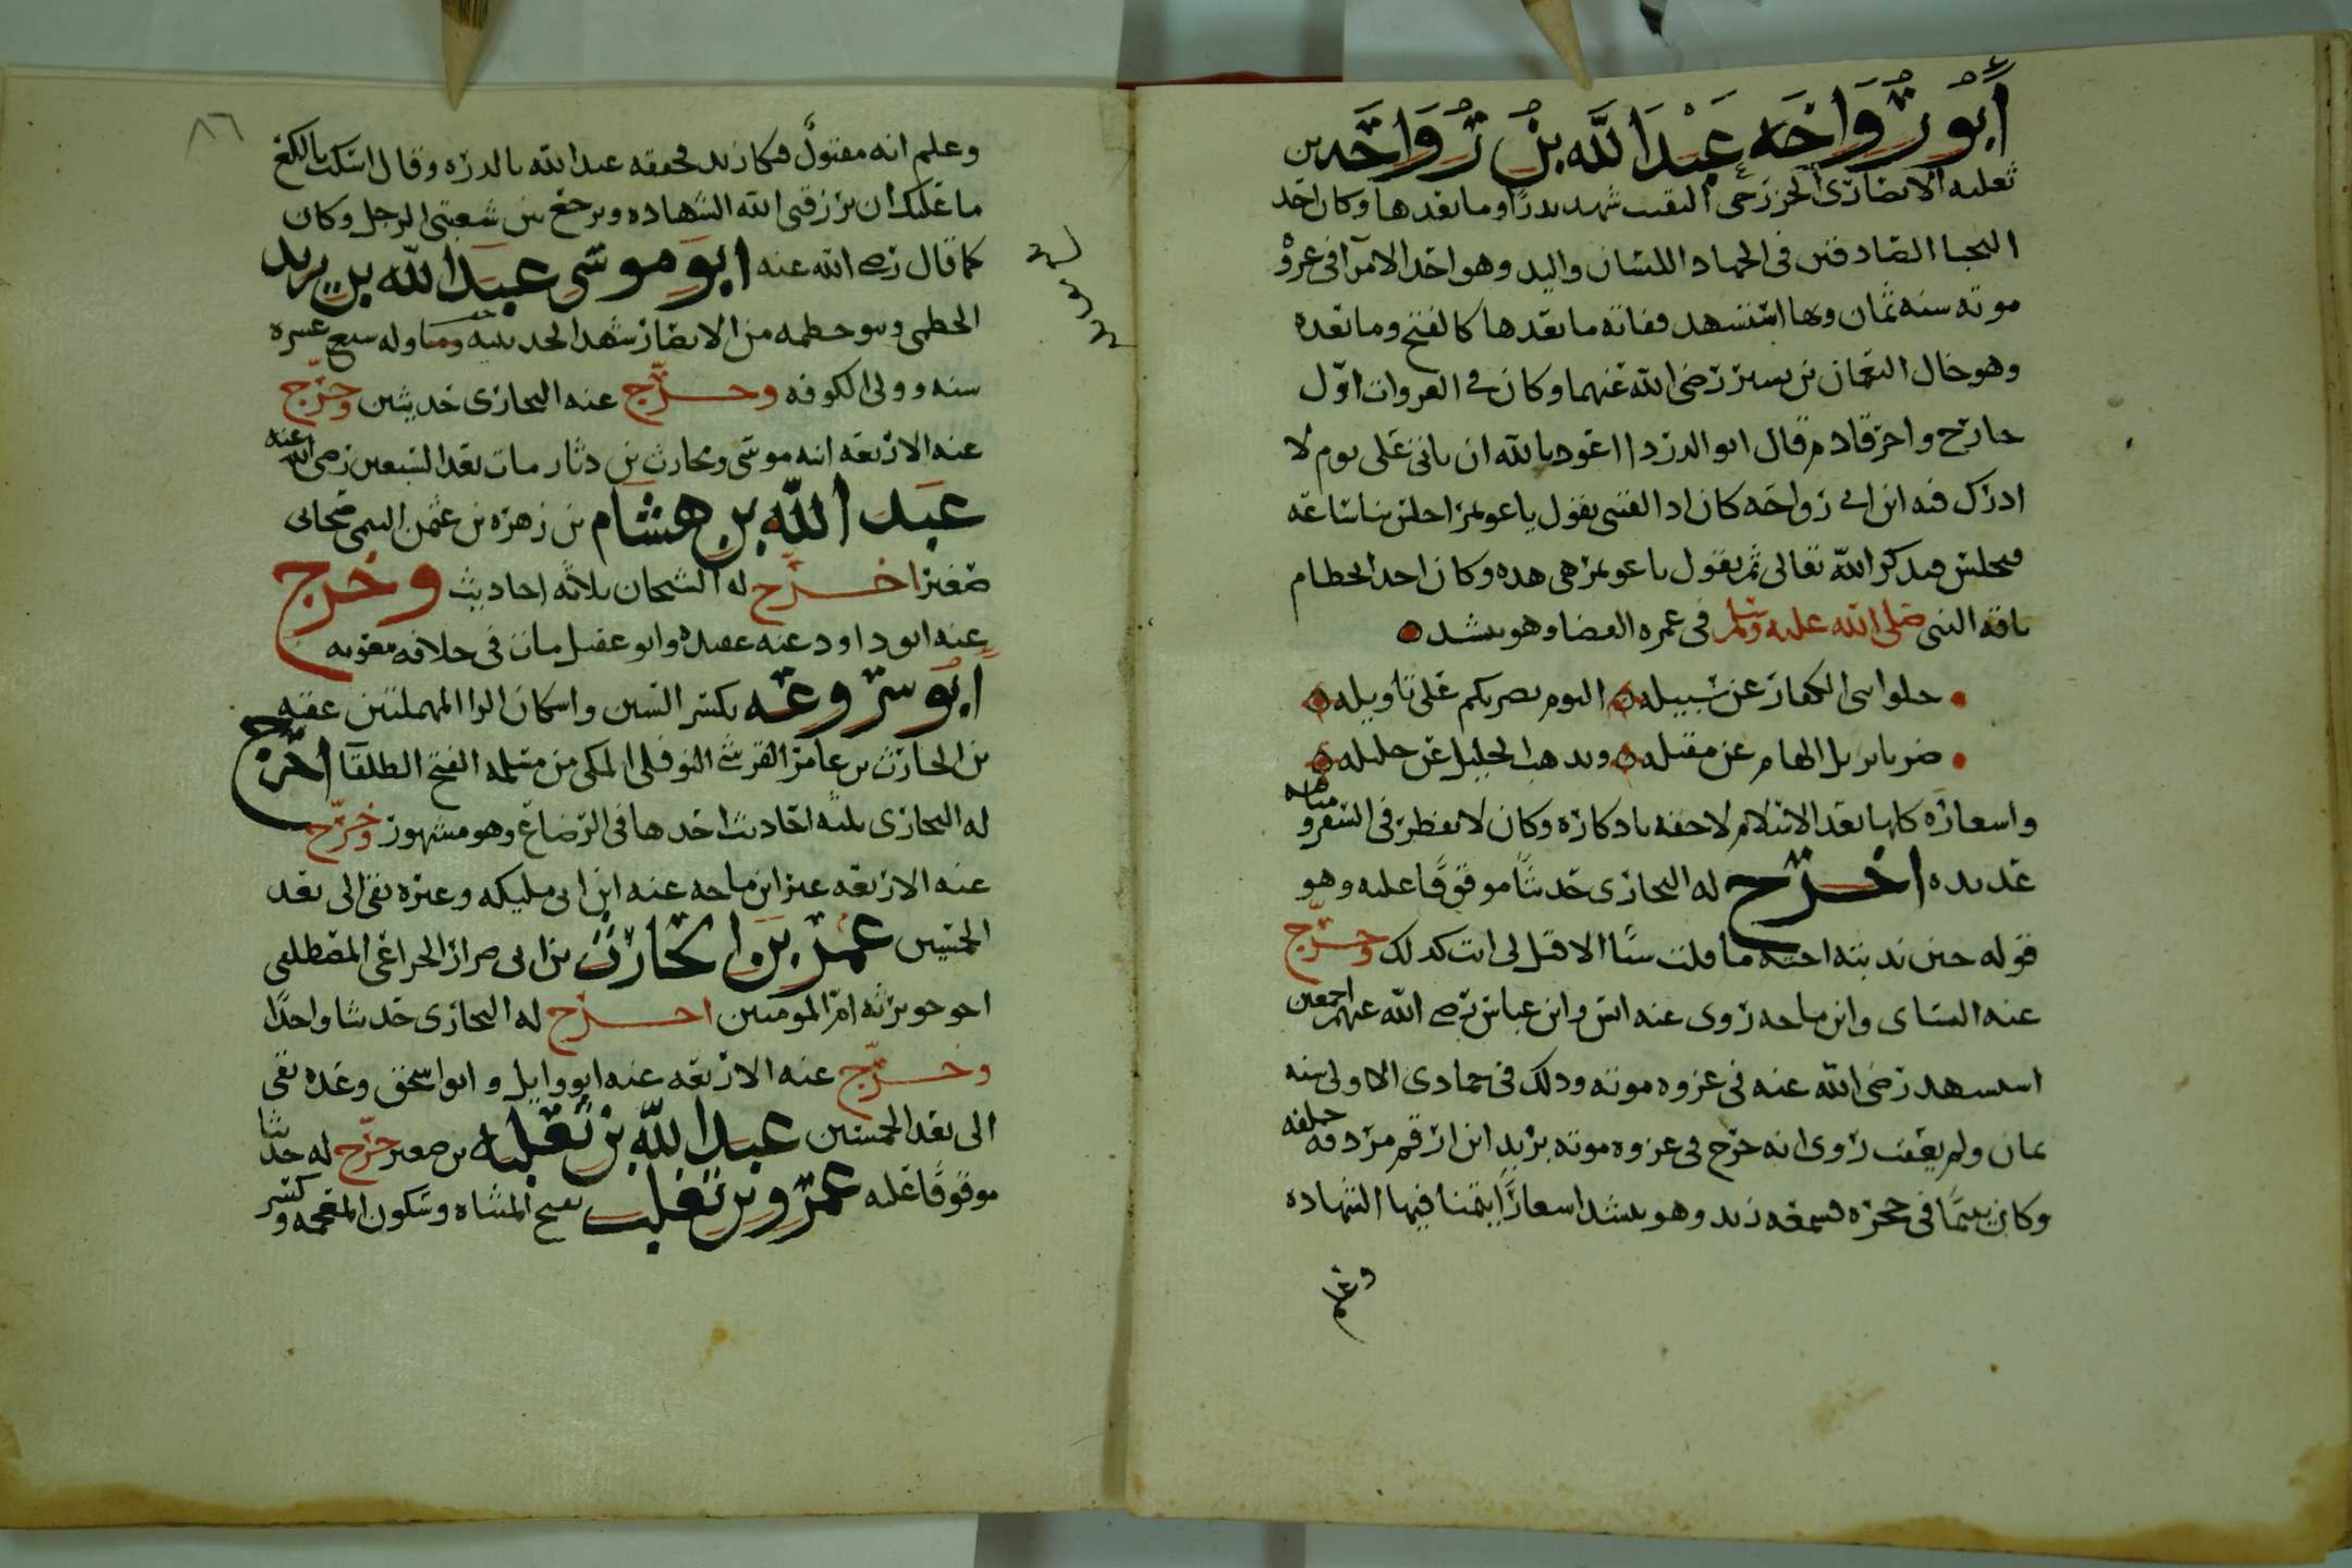 أبو رواحه عبد الله بن رواحه بن
ثعلبه الانصارى الخزرجى النقيب شهد بدرًا وما بعدها وكان احد
النجبا الصادقين فى الجهاد اللسان واليد وهو احد الامرا فى غزوة
موته سنه ثمان وبها استشهد ففاته ما بعدها كالفتح وما بعده
وهو خال النعمان بن بسير رضى الله عنهما وكان فى الغزوات اول
خارج واخر قادم قال ابو الدردا اعوذ بالله ان ياتى على يوم لا
اذكر فيه ابن ابى رواحه كان اذا لقينى يقول يا عويمر اجلس بنا ساعه
فنجلس فيذكر الله تعالى ثم يقول يا عويمر هى هذه وكان احد الخطام
ناقه النبى صلى الله عليه وسلم فى عمره القضا وهو ينشد
خلوا بنى الكفار عن سبيله اليوم نضربكم على تاويله
ضربا يزيل الهام عن مقيله ويذهب الخليل عن خليله
واسعاره كلها بعد الاسلام لاحقه باذكاره وكان لا يفطر فى السفر و
عديده اخرج له البخارى حديثًا موقوفًا عليه وهو
قوله حين ندبته اخته ما قلت شيًا الا قيل لى انت كذلك وخرج
عنه النساى وابن ماجه روى عنه انس وابن عباس رضى الله عنهم اجمعين
استسهد رضى الله عنه فى غزوه موته وذلك فى جمادى الاولى سنه
ثمان ولم يعقب روى انه خرج فى غزوه موته بزيد ابن ارقم مردفه خلفه
وكان يتيمًا فى حجره فسمعه زيد وهو ينشد اسعارًا يتمنا فيها الشهاده
وعلم
٨٦
وعلم انه مقتولٌ فبكا زيد فخفقه عبد الله بالدره وقال اسكت يا لكع
ما عليك ان يرزقنى الله الشهاده وترجع بين شعبتى الرحل وكان
كما قال رضى الله عنه ابو موسى عبد الله بن يزيد
الخطمى وبنو خطمه من الانصار شهد الحديبيه وله سبع عشره
سنه وولى الكوفه وخرج عنه البخارى حديثين وخرج
عنه الاربعه ابنه موسى ومحارب بن دثار مات بعد السبعين رضى الله عنه
عبد الله بن هشام بن زهره بن عثمن التيمى صحابى
صغير اخرج له الشيخان ثلاثه احاديث وخرج
عنه ابو داود عنه عقيده وابو عقيل مات فى خلافه معويه
أبو سروعه بكسر السين واسكان الرا المهملتين عقبه
بن الحارث بن عامر القرشى النوفلى المكى من مسلمه الفتح الطلقا اخرج
له البخارى ثلثه احاديث احدها فى الرضاع وهو مشهور وخرج
عنه الاربعه غير ابن ماجه عنه ابن ابى مليكه وغيره بقى الى بعد
الخمسين عمر بن الحارث بن ابى ضرار الخزاعى المصطلقى
اخو جويريه ام المومنين اخرج له البخارى حديثا واحدًا
وخرج عنه الاربعه عنه ابو وايل وابو اسحق وعده بقى
الى بعد الخمسين عبد الله بن ثعلبه بن صعير خرج له حديثا
موقوفًا عليه عمرو بن تغلب بفتح المثناه وسكون المعجمه وكسر